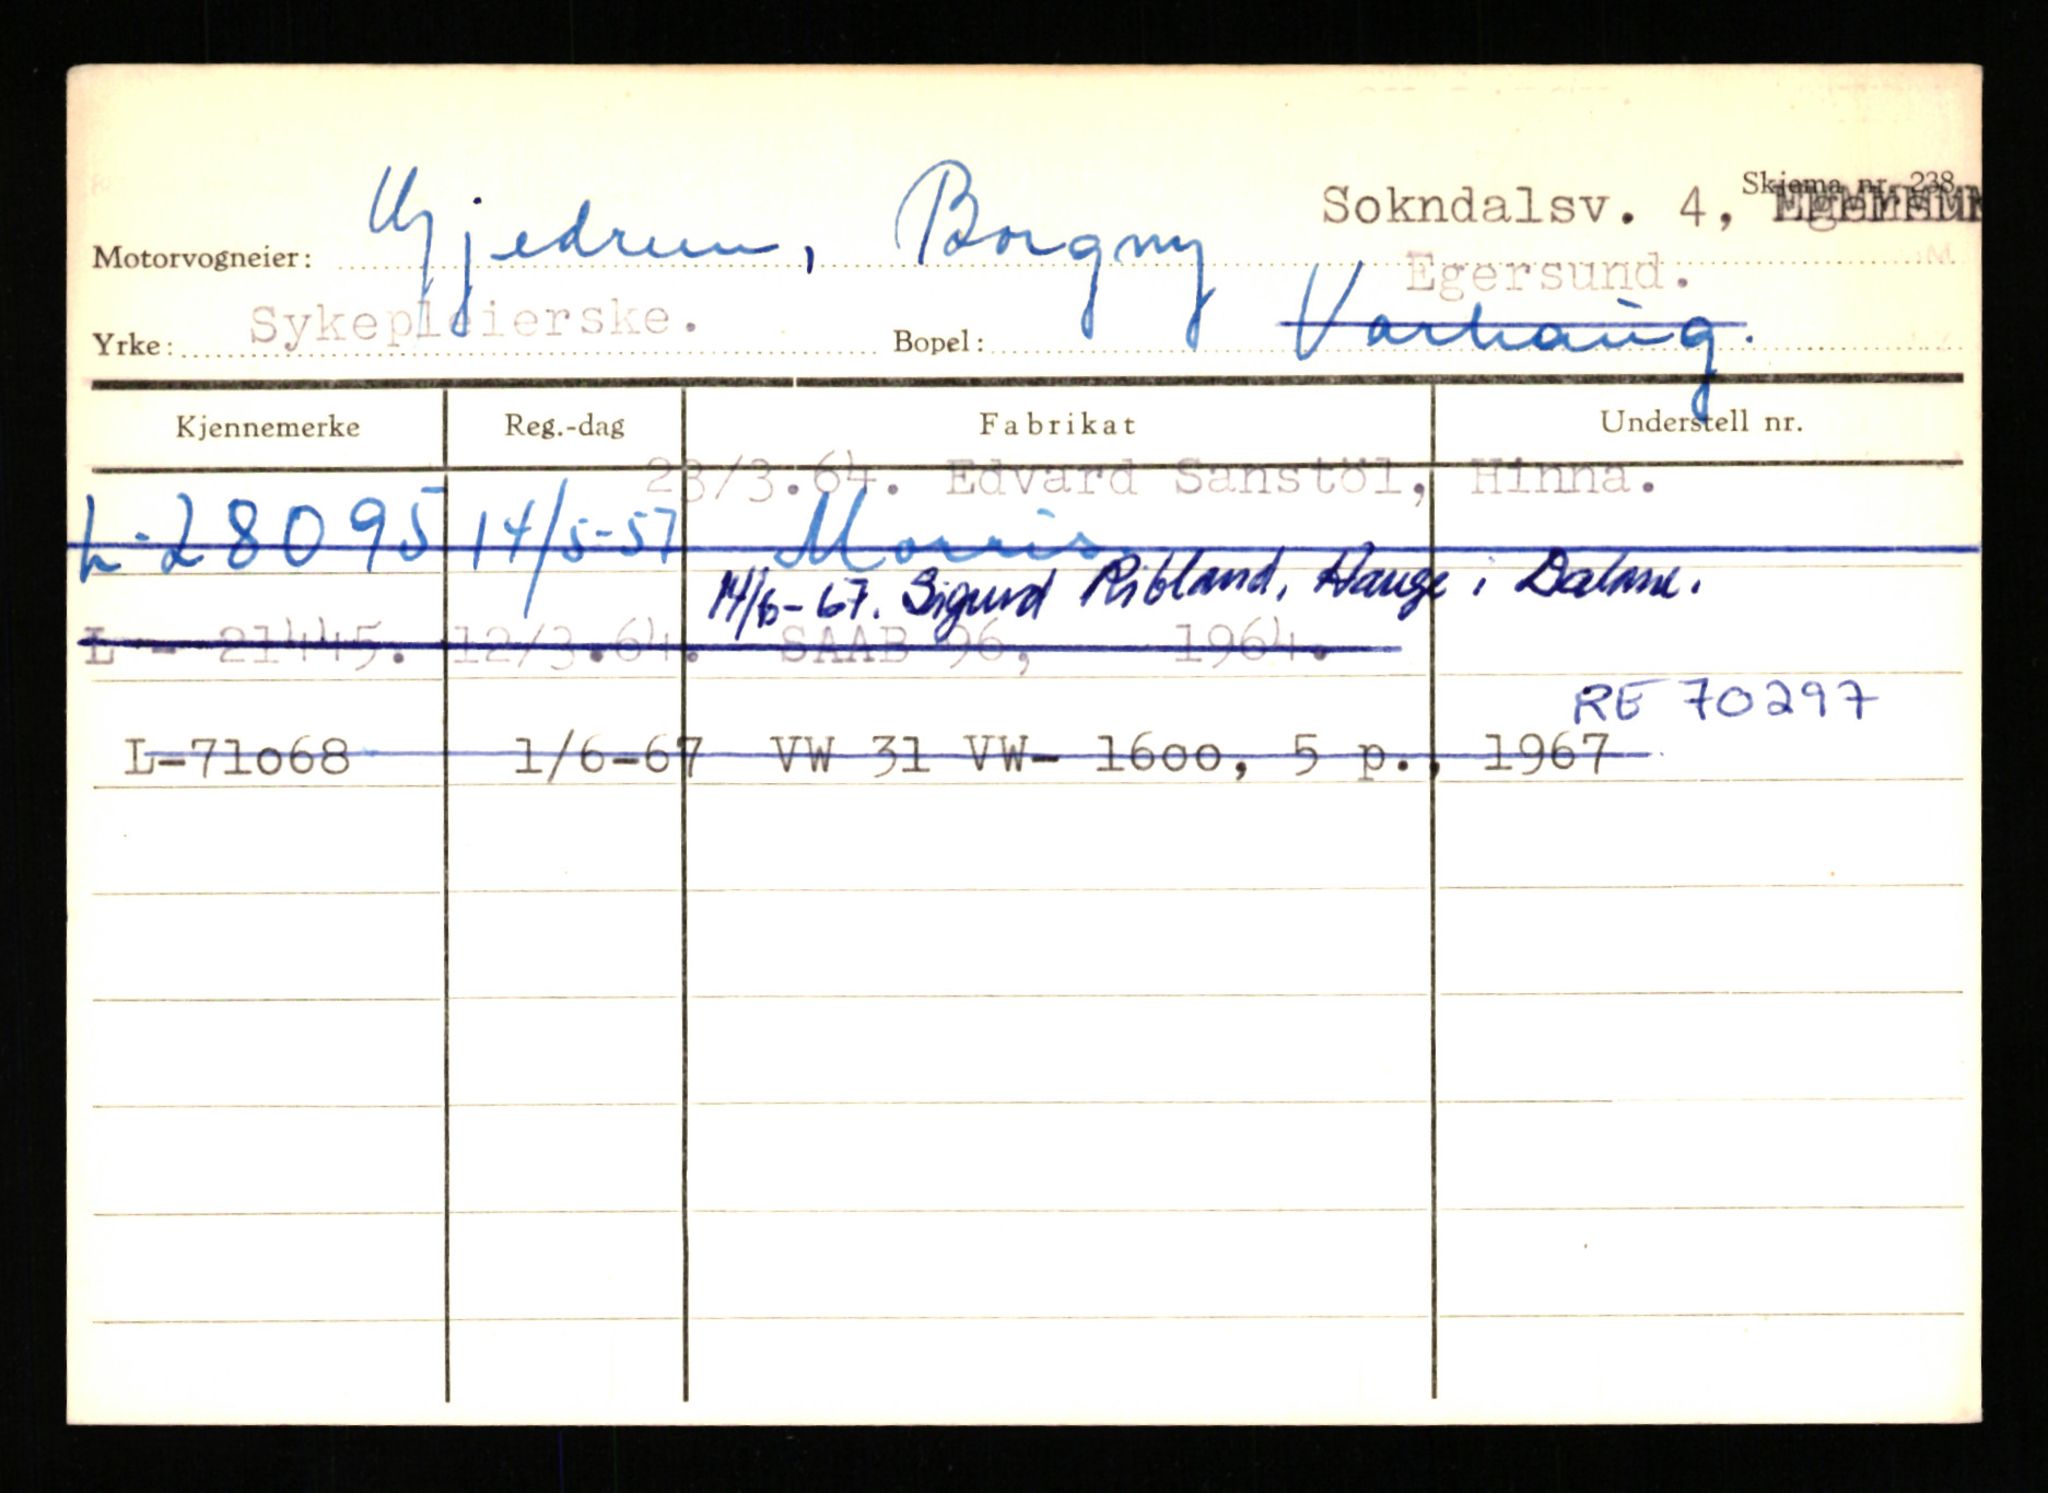 Skjema nr. 238.
Sokndalsv. 4, Egersun
Motorvogneier: Gjedrem, Borgny
Egersund.
Yrke: Sykepleierske. Bopel: Varhaug.
Kjennemerke Reg.-dag Fabrikat Understell nr.
23/3.64. Edvard Sanstöl, Hinna.
L-28095 14/5-57 Morris
14/6-67. Sigurd Ribland, Hauge i Dalane.
L - 21445. 12/3.64. SAAB 96, 1964.
RE 70297
L-71068 1/6-67 VW 31 VW- 1600, 5 p., 1967